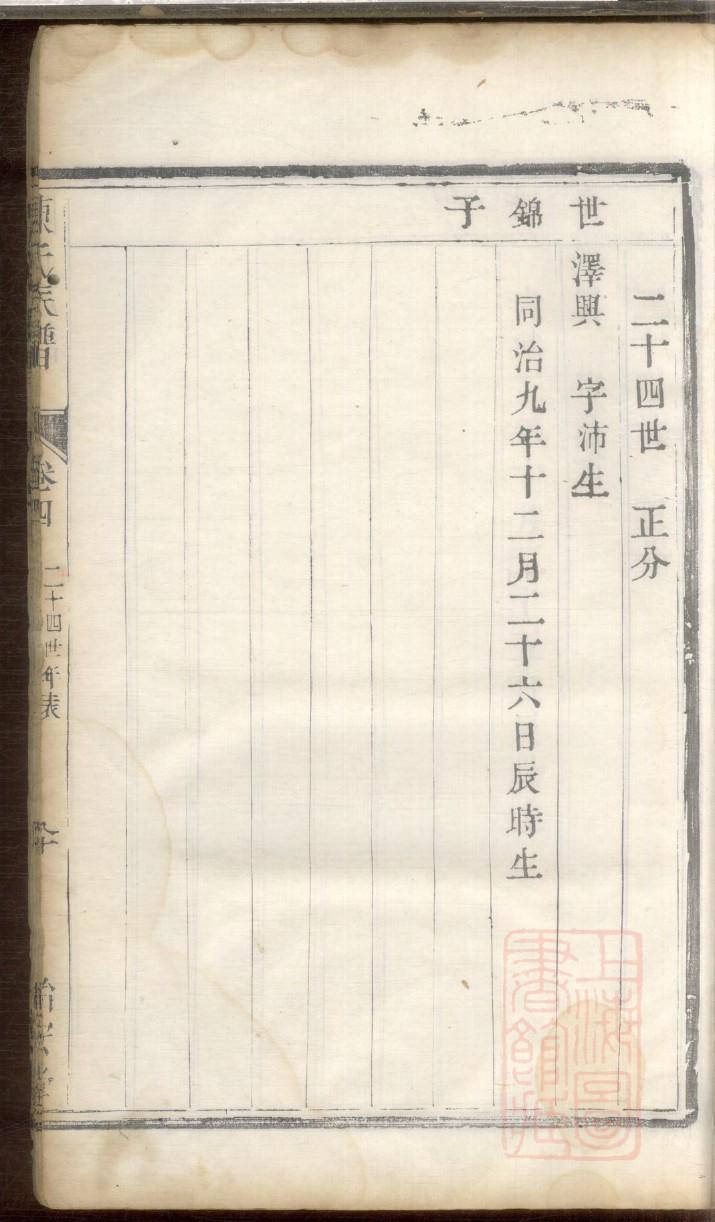 二十四世 正分
世錦子
澤興 字沛生
同治九年十二月二十六日辰時生
陳氏族譜
卷四
二十四世年表
上海圖書館藏